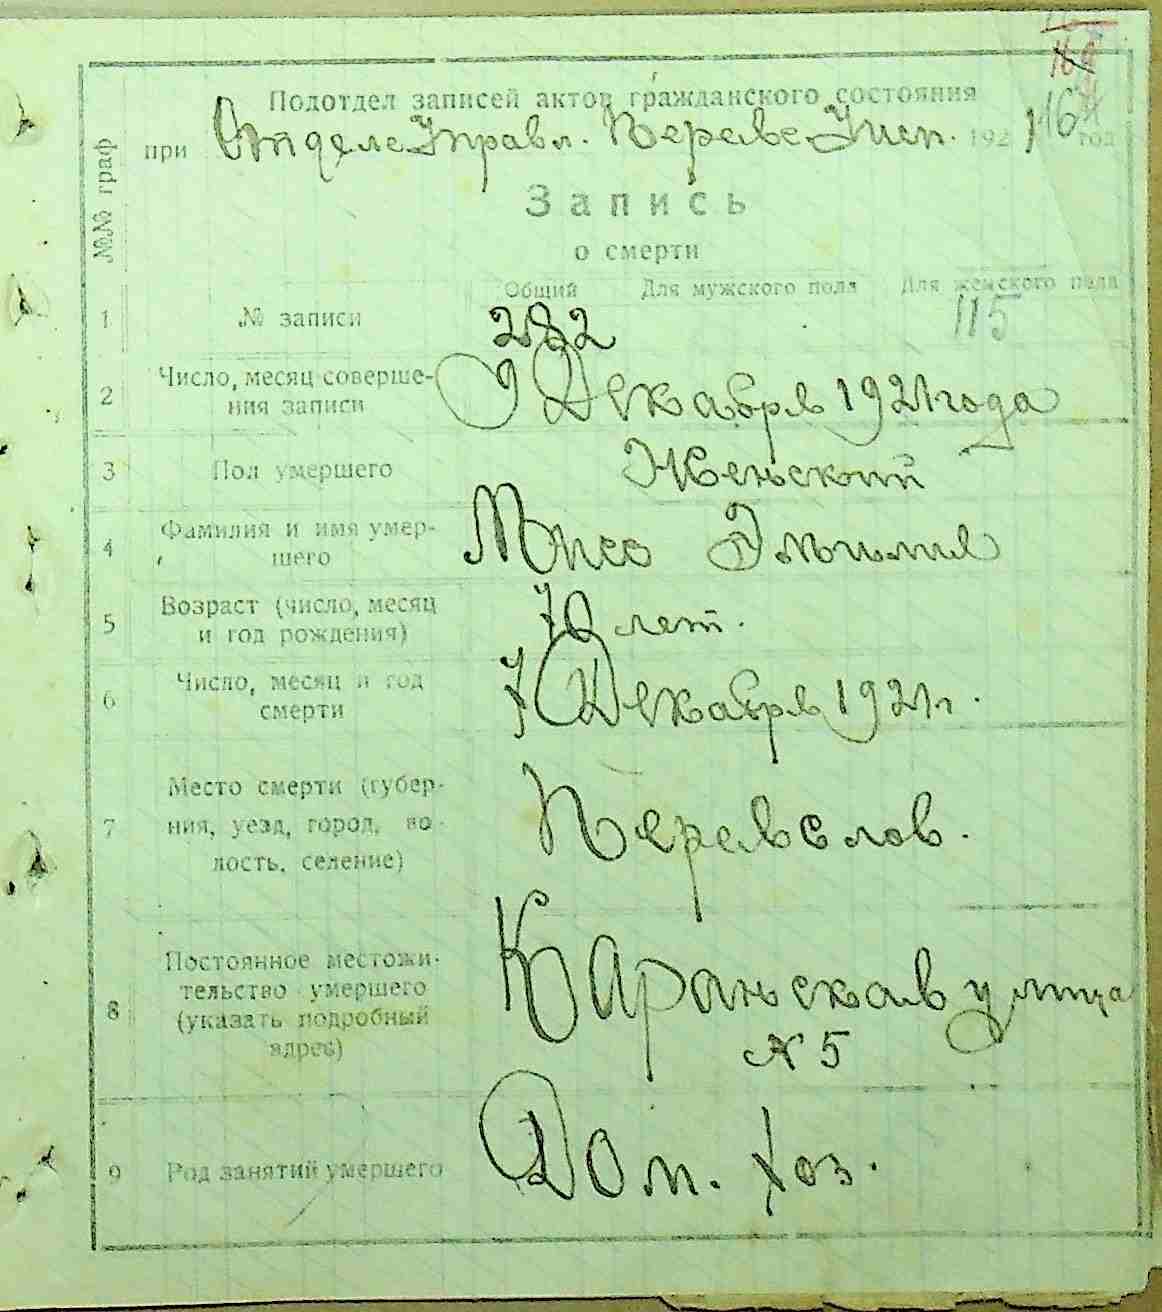 164
Подотдел записей актов гражданского состояния
при Отделе Управл. Переяс Уисп. 1921 год
№№ граф
Запись
о смерти
Общий Для мужского пола Для женского пола
1 № записи 282 115
2 Число, месяц соверше-
ния записи 9 Декабря 1921 года
3 Пол умершего Женский
4 Фамилия и имя умер-
шего Эмилия
5 Возраст (число, месяц
и год рождения) 70 лет.
6 Число, месяц и год
смерти 7 Декабря 1921 г.
7 Место смерти (губер-
ния, уезд, город, во-
лость, селение) Переяслав.
8 Постоянное местожи-
тельство умершего
(указать подробный
адрес) Каранская улица
№ 5
9 Род занятий умершего Дом. хоз.